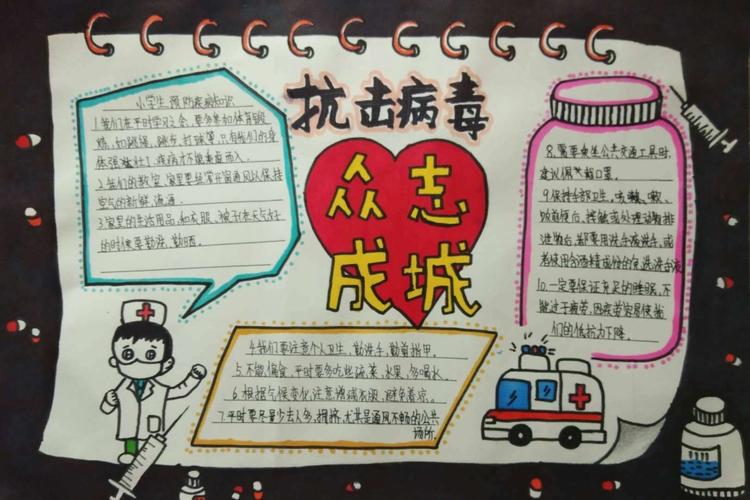 抗击病毒
众志
成城
小学生预防疾病知识
1.我们在平时学习之余,要多参加体育锻
炼,如跳绳、跑步、打球等,只有我们的身
体强壮了,疾病才不能乘虚而入。
2.我们的教室、家里要经常开窗通风以保持
空气的新鲜、流通。
3.家里的生活用品,如衣服、被子在天气好
的时候要勤洗、勤晒。
4.我们要注意个人卫生、勤洗手、勤剪指甲。
5.不能偏食,平时要多吃些蔬菜、水果、多喝水。
6.根据气候变化,注意增减衣服,避免着凉。
7.平时要尽量少去人多、拥挤,尤其是通风不畅的公共
场所。
8.需要乘坐公共交通工具时,
建议佩戴口罩。
9.保持手部卫生。咳嗽、
饭前便后、接触或处理动物排
泄物后,都要用洗手液洗手,或
者使用含酒精成份的免洗洗手液
10.一定要保证充足的睡眠,不
能过于疲劳,因疲劳容易使我
们的抵抗力下降。